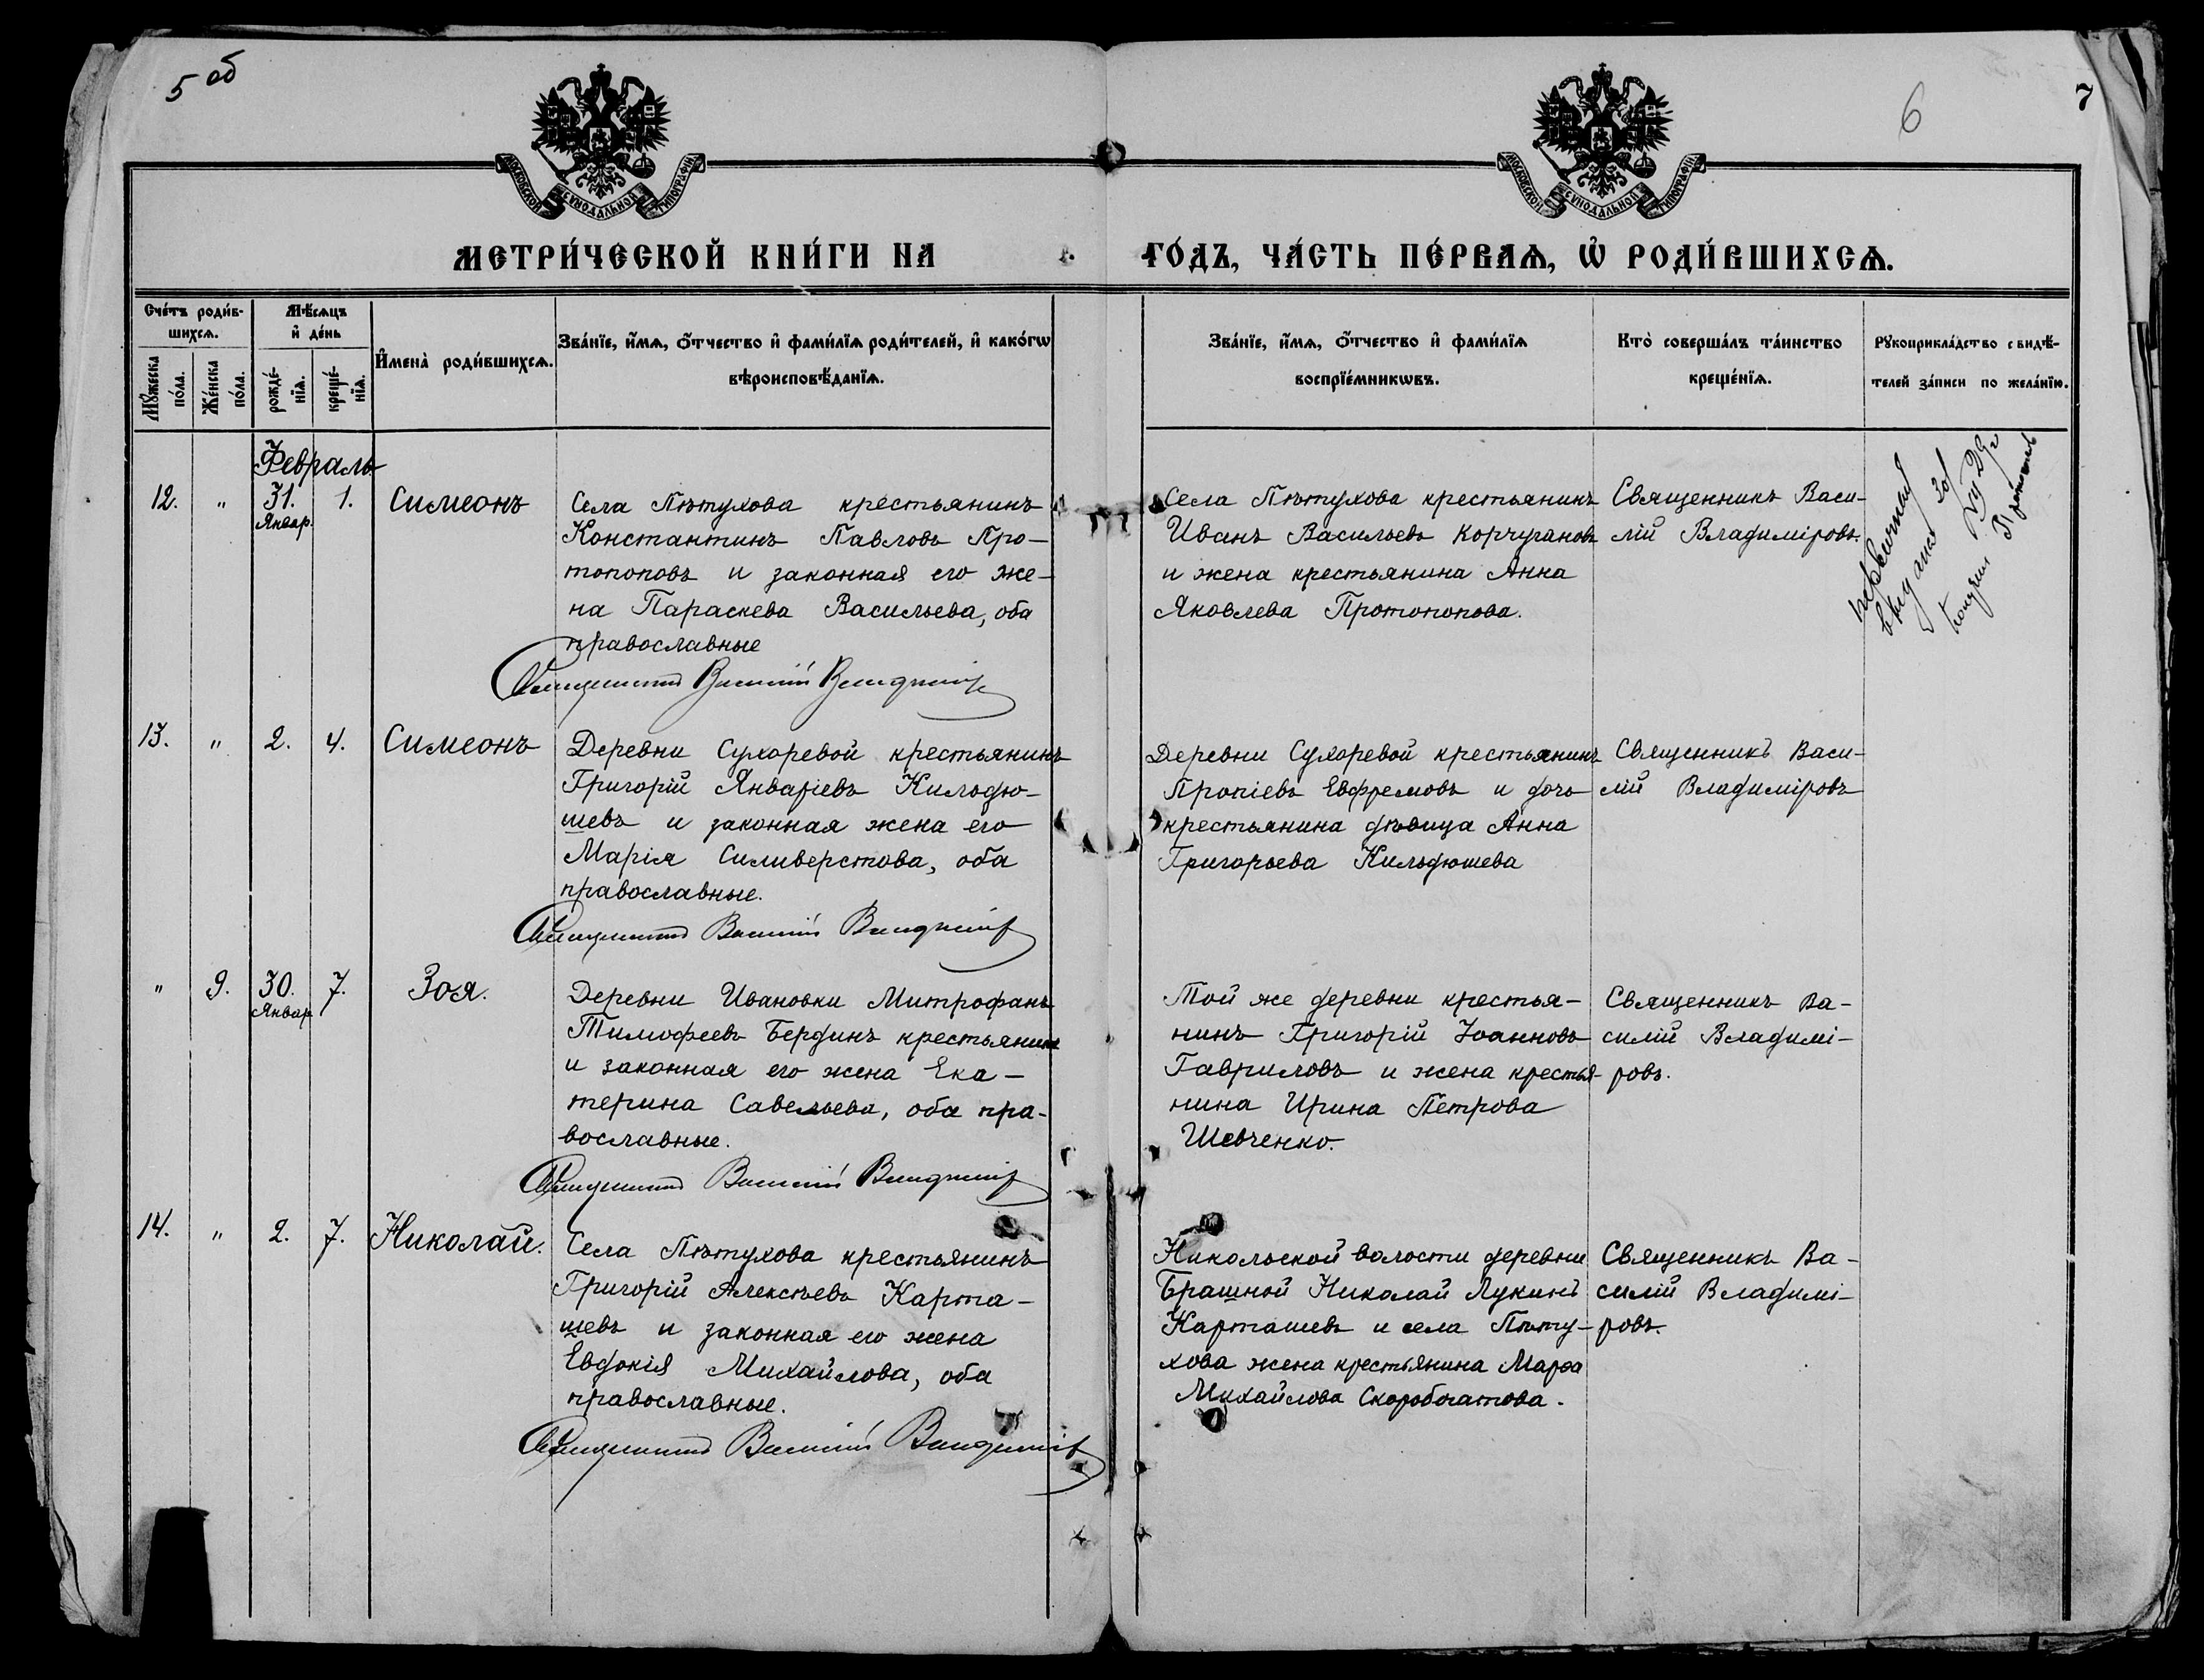 5 об
6
7
МОСКОВСКОЙ СѴНОДАЛЬНОЙ ТИПОГРАФІИ
МОСКОВСКОЙ СѴНОДАЛЬНОЙ ТИПОГРАФІИ
МЕТРИ́ЧЕСКОЙ КНИ́ГИ НА
ГО́ДЪ, ЧА́СТЬ ПЕ́РВАѦ, Ѡ҆ РОДИ́ВШИХСѦ.
Сче́тъ роди́в-
шихсѧ.
Мꙋ́жеска по́ла.
Же́нска по́ла.
Мѣ́сѧцъ
и҆ де́нь
рожде́-
нїѧ.
креще́-
нїѧ.
И҆мена̀ роди́вшихсѧ.
Зва́нїе, и҆́мѧ, ѻ҆́тчество и҆ фами́лїѧ роди́телей, и҆ како́гѡ
вѣроисповѣ́данїѧ.
Зва́нїе, и҆́мѧ, ѻ҆́тчество и҆ фами́лїѧ
воспрїе́мникѡвъ.
Кто̀ соверша́лъ та́инство
креще́нїѧ.
Рꙋкоприкла́дство свидѣ́-
телей за́писи по жела́нїю.
Февраль
12. " 31. 1. Симеонъ
Январ.
Села Пѣтухова крестьянинъ
Константинъ Павловъ Про-
топоповъ и законная его же-
на Параскева Васильева, оба
православные
Священникъ Василій Владиміровъ
Села Пѣтухова крестьянинъ
Иванъ Васильевъ Корчугановъ
и жена крестьянина Анна
Яковлева Протопопова.
Священникъ Васи-
лій Владиміровъ.
13. " 2. 4. Симеонъ
Деревни Сухоревой крестьянинъ
Григорій Январіевъ Кильдю-
шевъ и законная жена его
Марія Силиверстова, оба
православные.
Священникъ Василій Владиміровъ
Деревни Сухоревой крестьянинъ
Евфремовъ и дочь
крестьянина дѣвица Анна
Григорьева Кильдюшева
Священникъ Васи-
лій Владиміровъ
" 9. 30. 7. Зоя.
Январ.
Деревни Ивановки Митрофанъ
Тимофеевъ Бердинъ крестьянинъ
и законная его жена Ека-
терина Савельева, оба пра-
вославные.
Священникъ Василій Владиміровъ
Той же деревни крестья-
нинъ Григорій Іоанновъ
Гавриловъ и жена крестья-
нина Ирина Петрова
Шевченко.
Священникъ Ва-
силій Владимі-
ровъ.
14. " 2. 7. Николай.
Села Пѣтухова крестьянинъ
Григорій Алексѣевъ Карта-
шевъ и законная его жена
Евдокія Михайлова, оба
православные.
Священникъ Василій Владиміровъ
Никольской волости деревни
Брашной Николай Лукинъ
Карташевъ и села Пѣту-
хова жена крестьянина Марѳа
Михайлова Скоробогатова.
Священникъ Ва-
силій Владимі-
ровъ.